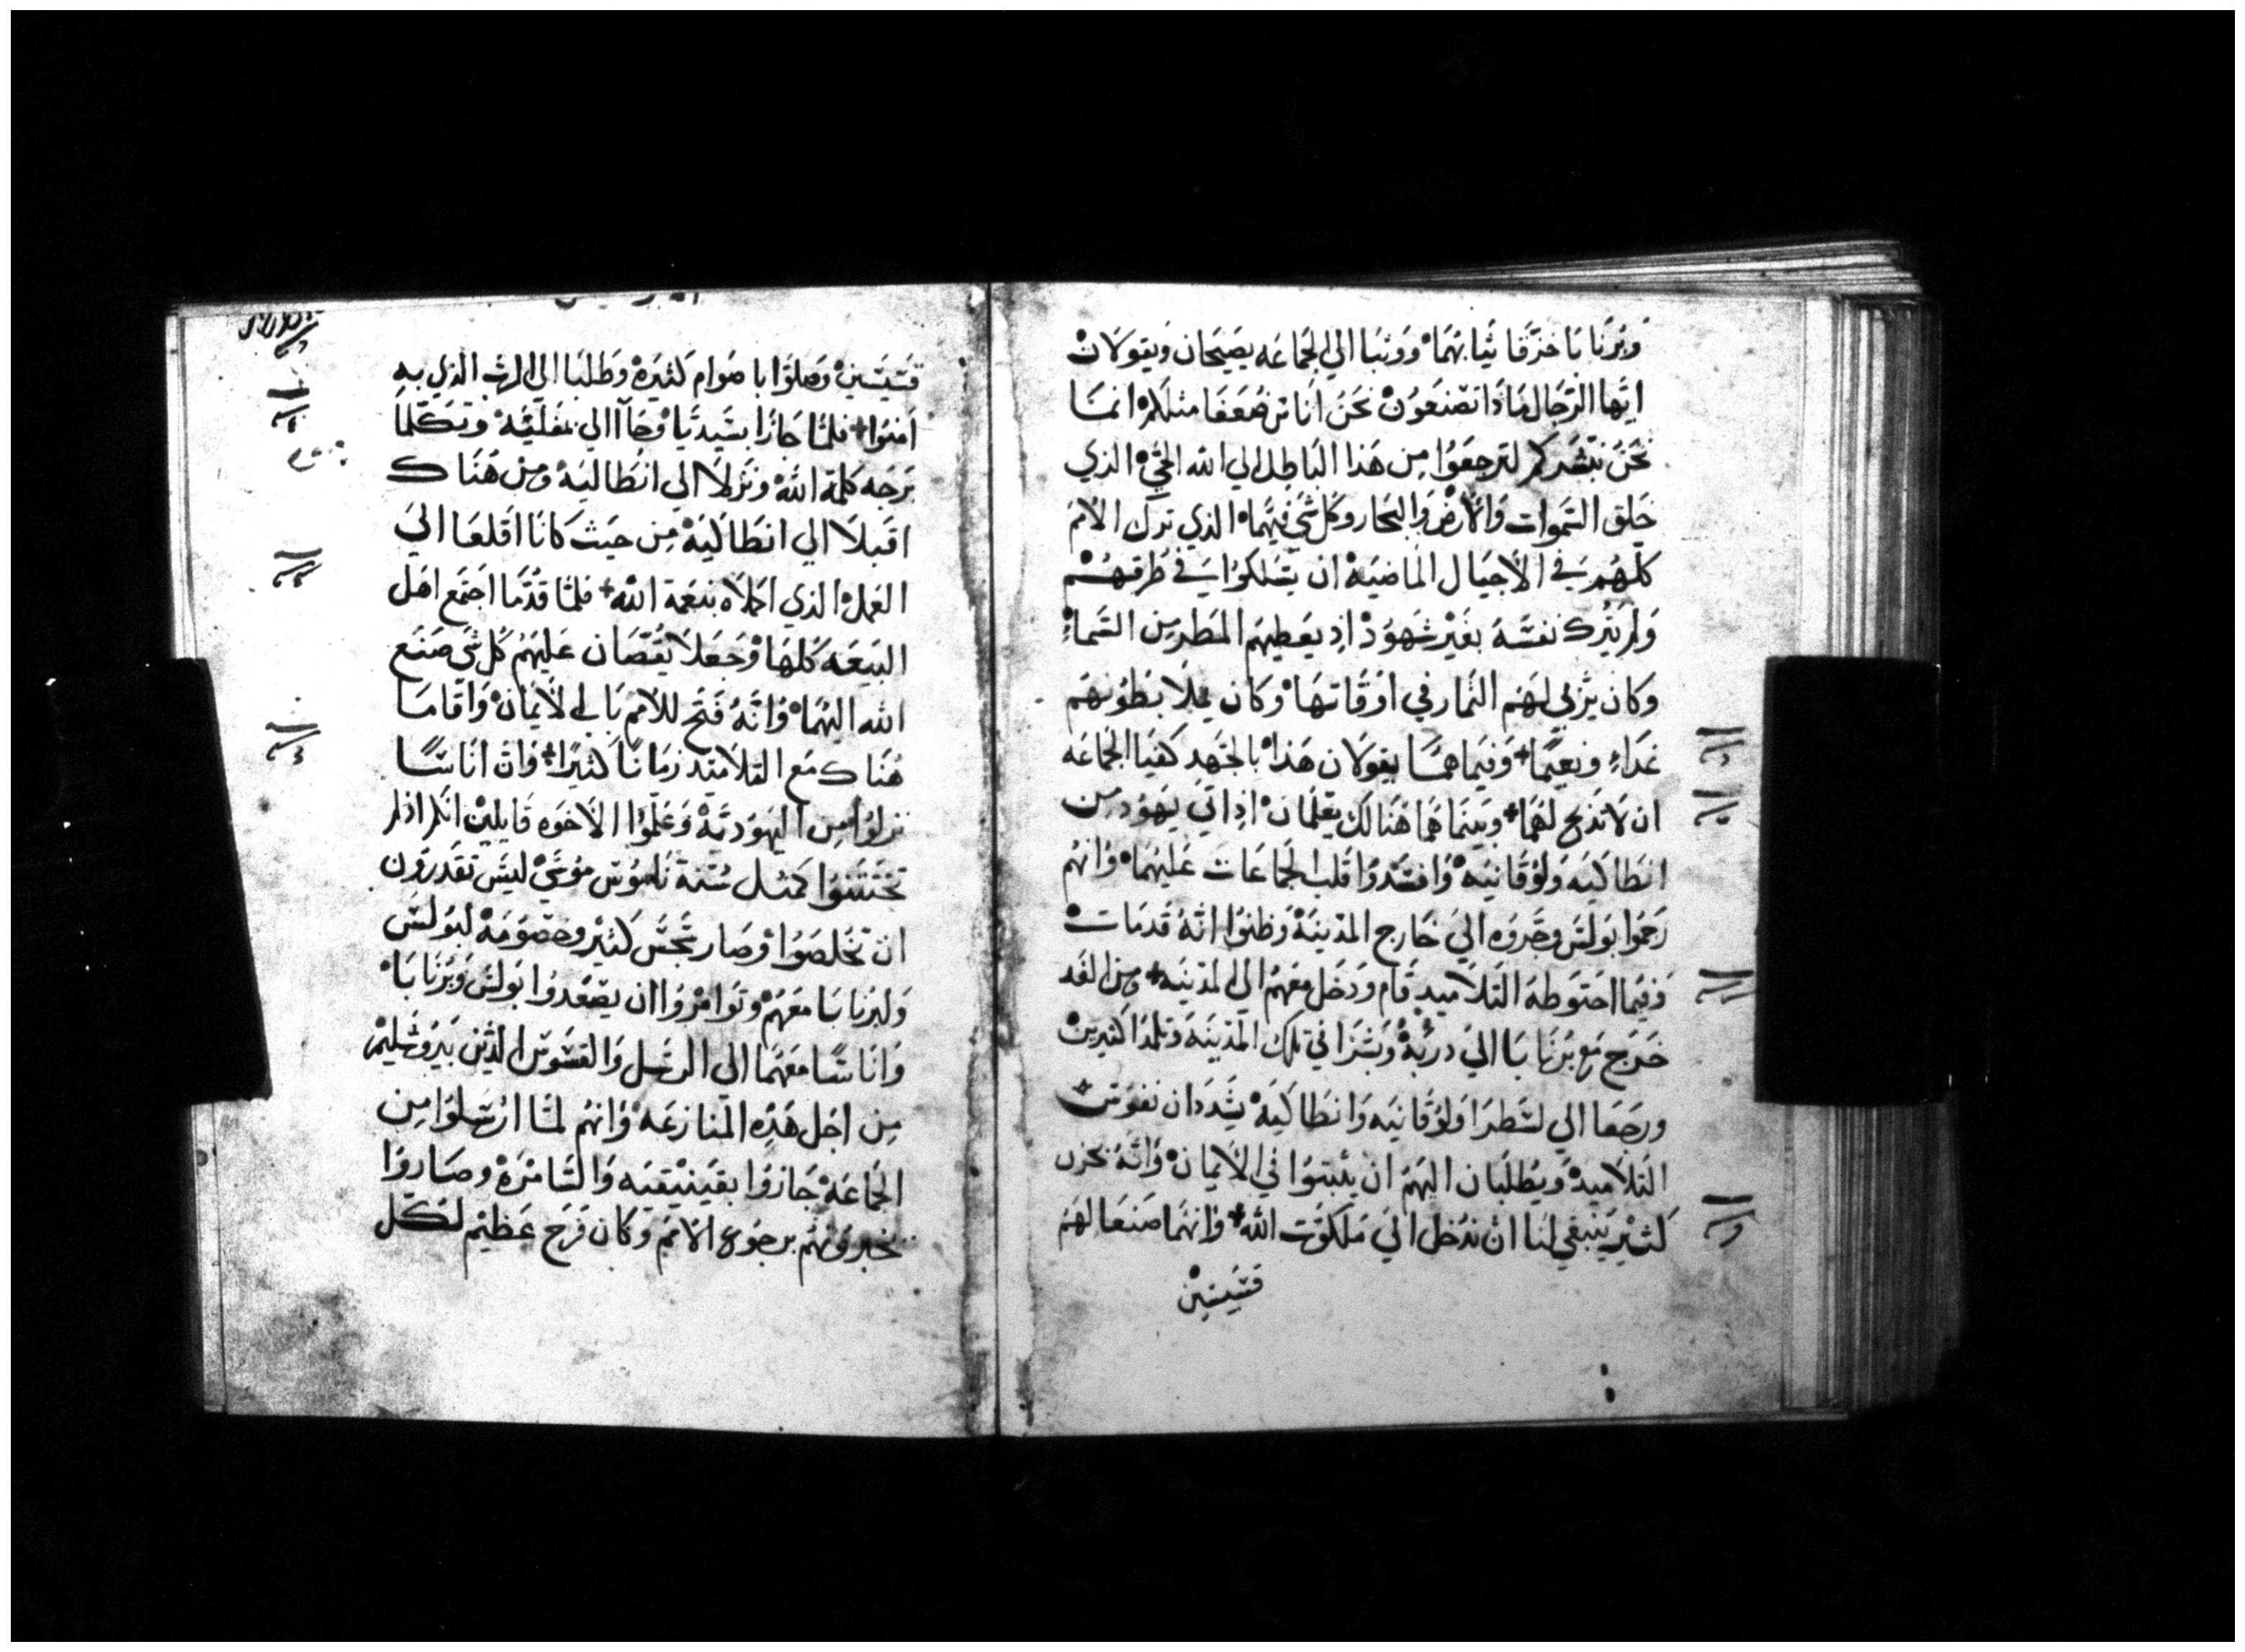 وبرنابا خزقا ثيابهما ووثبا الي الجماعه يصيحان ويقولان
ايها الرجال ماذا تصنعون نحن اناس ضعفا مثلكم انما
نحن نبشركم لترجعوا من هذا الباطل الي الله الحي الذي
خلق السموات والارض والبحار وكل شي فيهما الذي ترك الامم
كلهم في الاجيال الماضيه ان يسلكوا في طرقهم
ولم يترك نفسه بغير شهود اذ يعطيهم المطر من السماء
وكان يربي لهم الثمار في اوقاتها وكان يملا بطونهم
غداء ونعيما وفيما هما يقولان هذا بالجهد كفيا الجماعه
ان لا تذبح لهما وبينما هما هنالك يعلمان اذ اتي يهود من
انطاكيه ولوقانيه وافسدوا قلب الجماعات عليهما وانهم
رجموا بولس وجروه الي خارج المدينة وظنوا انه قد مات
وفيما احتوطه التلاميد قام ودخل معهم الي المدينه ومن الغد
خرج مع برنابا الي دربة وبشرا في تلك المدينه وتلمدا كثيرين
ورجعا الي لسطرا ولوقانيه وانطاكيه يشددان نفوس
التلاميد ويطلبان اليهم ان يثبتوا في الايمان وانه بحزن
كثير ينبغي لنا ان ندخل الي ملكوت الله وانهما صنعا لهم
قسيسين
قسيسين وصلوا باصوام كثيرة وطلبا الي الرب الذي به
امنوا فلما جازا بسيديا وجاا الي بمفليه وتكلما
برجه كلمة الله ونزلا الي انطاليه ومن هناك
اقبلا الي انطاكيه من حيث كانا اقلعا الي
العمل الذي اكملاه بنعمة الله فلما قدما اجتمع اهل
البيعه كلها وجعلا يقصان عليهم كل شي صنع
الله اليهما وانه فتح للامم باب الايمان واقاما
هناك مع التلاميد زمانا كثيرا وان اناسا
نزلوا من اليهودية وعلموا الاخوه قايلين انكم اذ لم
تختتنوا كمثل سنة ناموس موسي ليس تقدرون
ان تخلصوا وصار سجس كثير وخصومة لبولس
ولبرنابا معهم وتوامروا ان يصعدوا بولس وبرنابا
واناسا معهما الي الرسل والقسوس الذين بيروشليم
من اجل هذه المنازعه وانهم لما ارتسلوا من
الجماعة جازوا بفينيقيه والسامرة وصاروا
يخبرونهم برجوع الامم وكان فرح عظيم لكل